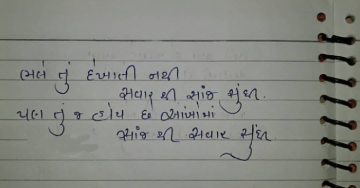 ભલે તું દેખાતી નથી
સવાર થી સાંજ સુધી.
પણ તું જ હોય છે આંખોમાં
સાંજ થી સવાર સુધી